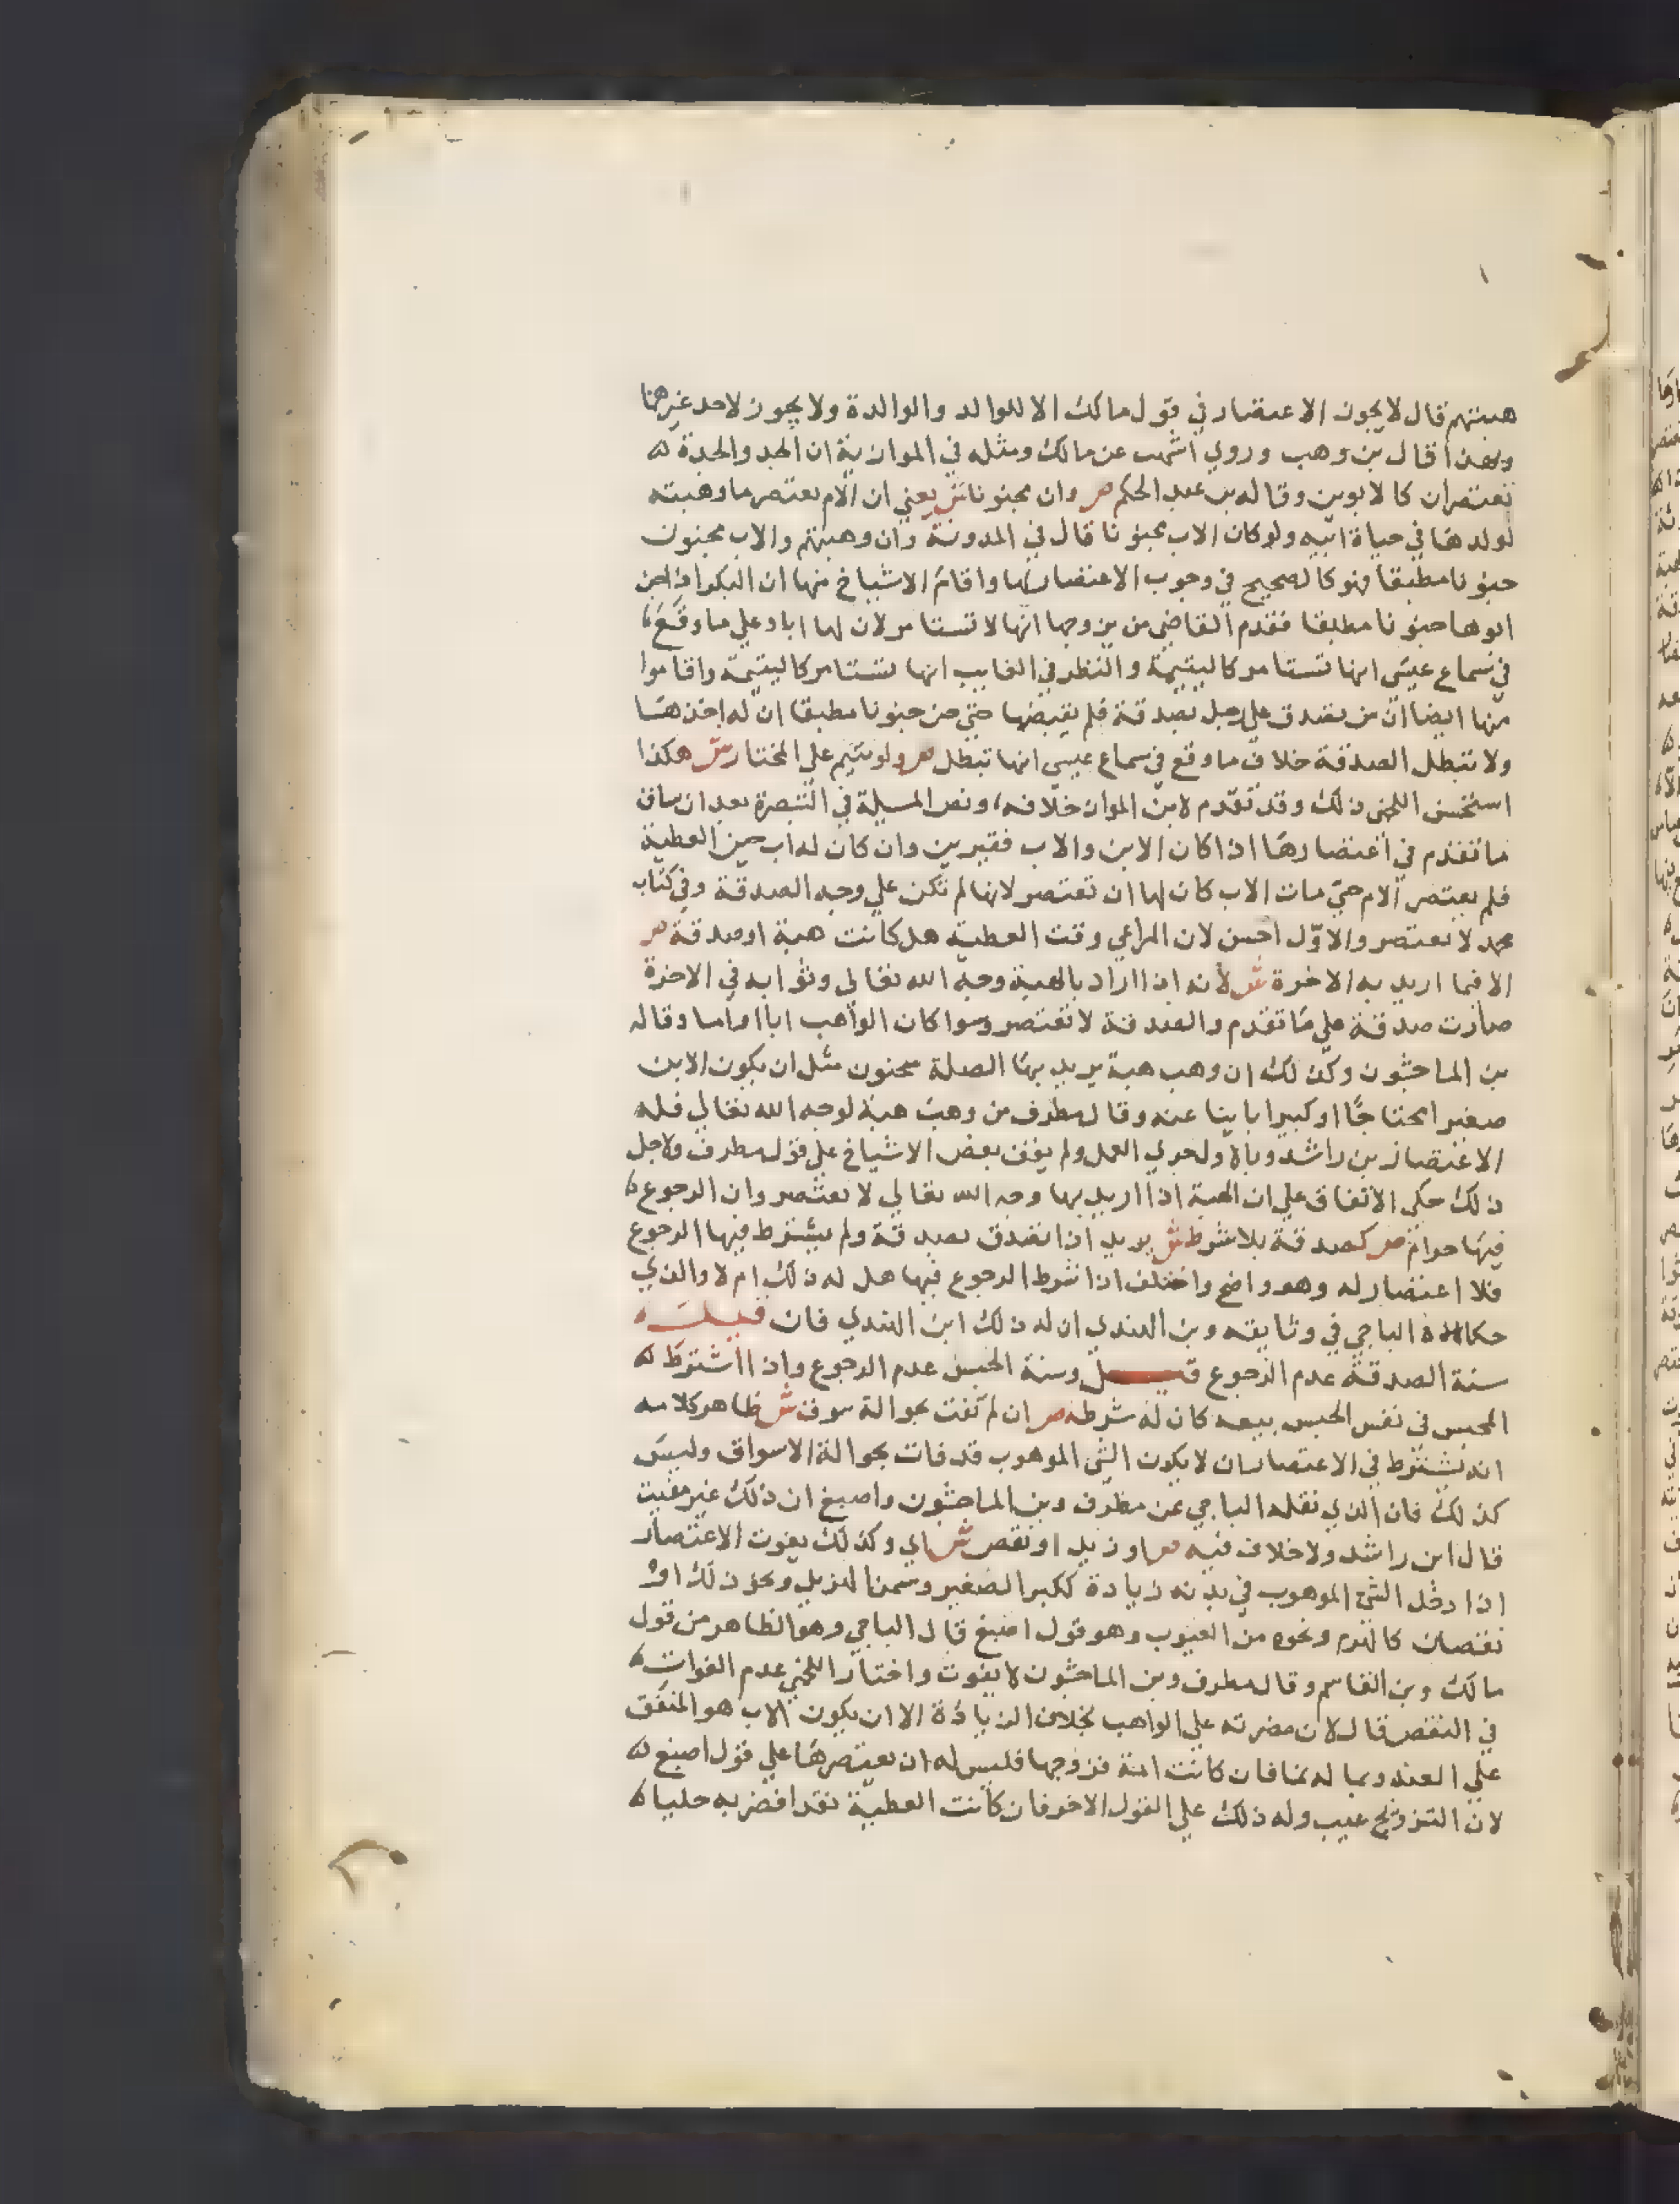 هبتهم قال لا يجوز الاعتصار في قول مالك الا للوالد والوالدة ولا يجوز لاحد غيرهما
وبهذا قال بن وهب وروي اشهب عن مالك ومثله في الموازية ان الجد والجدة
تعتصران كالابوين وقاله بن عبد الحكم ص وان مجنونا ش يعني ان الام تعتصر ما وهبته
لولدها في حياة ابيه ولو كان الاب مجنونا قال في المدونة وان وهبتهم والاب مجنون
جنونا مطبقا فهو كالصحيح في وجوب الاعتصار لها واقام الاشياخ منها ان البكر اذا جن
ابوها جنونا مطبقا فقدم القاضي من يزوجها انها لا تستامر لان لها ابا وعلي ما وقع
في سماع عيسى انها تستامر كاليتيمة والنظر في الغايب انها تستامر كاليتيمة واقاموا
منها ايضا ان من تصدق علي رجل بصدقة فلم يقبضها حتي جن جنونا مطبقا ان له اخذها
ولا تبطل الصدقة خلاف ما وقع في سماع عيسي انها تبطل ص ولو تيتم علي المختار ش هكذا
استحسن اللخمي ذلك وقد تقدم لابن المواز خلافه ونص المسيلة في التبصرة بعد ان ساق
ما تقدم في اعتصارها اذا كان الابن والاب فقيرين وان كان له اب حين العطية
فلم يعتصر الام حتي مات الاب كان لها ان تعتصر لانها لم تكن علي وجه الصدقة وفي كتاب
محمد لا تعتصر والاول احسن لان المراعي وقت العطية هل كانت هبة او صدقة ص
الا فيما اريد به الاخرة ش لانه اذا اراد بالهبة وجه الله تعالي وثوابه في الاخرة
صارت صدقة علي ما تقدم والصدقة لا تعتصر وسوا كان الواهب ابا او اما وقاله
بن الماجشون وكذلك ان وهب هبة يريد بها الصلة سحنون مثل ان يكون الابن
صغيرا محتاجا او كبيرا باينا عنه وقال مطرف من وهب هبة لوجه الله تعالي فله
الاعتصار بن راشد وبالاول جري العمل ولم يقف بعض الاشياخ علي قول مطرف ولاجل
ذلك حكي الاتفاق علي ان الهبة اذا اريد بها وجه الله تعالي لا تعتصر وان الرجوع
فيها حرام ص كصدقة بلا شرط ش يريد اذا تصدق بصدقة ولم يشترط فيها الرجوع
فلا اعتصار له وهو واضح واختلف اذا شرط الرجوع فيها هل له ذلك ام لا والذي
حكاه الباجي في وثايقه وبن الهندي ان له ذلك ابن الهندي فان قيل
سنة الصدقة عدم الرجوع قيل وسنة الحبس عدم الرجوع واذا اشترط
المحبس في نفس الحبس بيعه كان له شرطه ص ان لم تفت بحوالة سوق ش ظاهر كلامه
انه يشترط في الاعتصار ان لا يكون الشي الموهوب قد فات بحوالة الاسواق وليس
كذلك فان الذي نقله الباجي عن مطرف وبن الماجشون واصبغ ان ذلك غير مفيت
قال ابن راشد ولا خلاف فيه ص او زيد او نقص ش اي وكذلك يفوت الاعتصار
اذا دخل الشي الموهوب في بدنه زيادة ككبر الصغير وسمن الهزيل ونحو ذلك او
نقصان كالهرم ونحوه من العيوب وهو قول اصبغ قال الباجي وهو الظاهر من قول
مالك وبن القاسم وقال مطرف وبن الماجشون لا يفوت واختار اللخمي عدم الفوات
في النقص قال لان مضرته علي الواهب بخلاف الزيادة الا ان يكون الاب هو المنفق
علي العبد وبماله نما فان كانت امة فزوجها فليس له ان يعتصرها علي قول اصبغ
لان التزويج عيب وله ذلك علي القول الاخر فان كانت العطية نقدا فضربه حليا